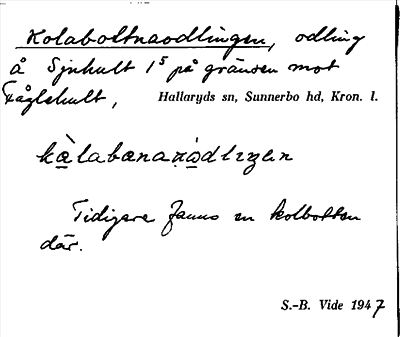 Kolaboltnaodlingen, odling
å Sjnhult 1⁵ på gränsen mot
Fåglehult, Hallaryds sn, Sunnerbo hd, Kron. l.
kàlabɑnaɴódlɩgen
Tidigare fanns en kolbotten
där.
S.-B. Vide 1947